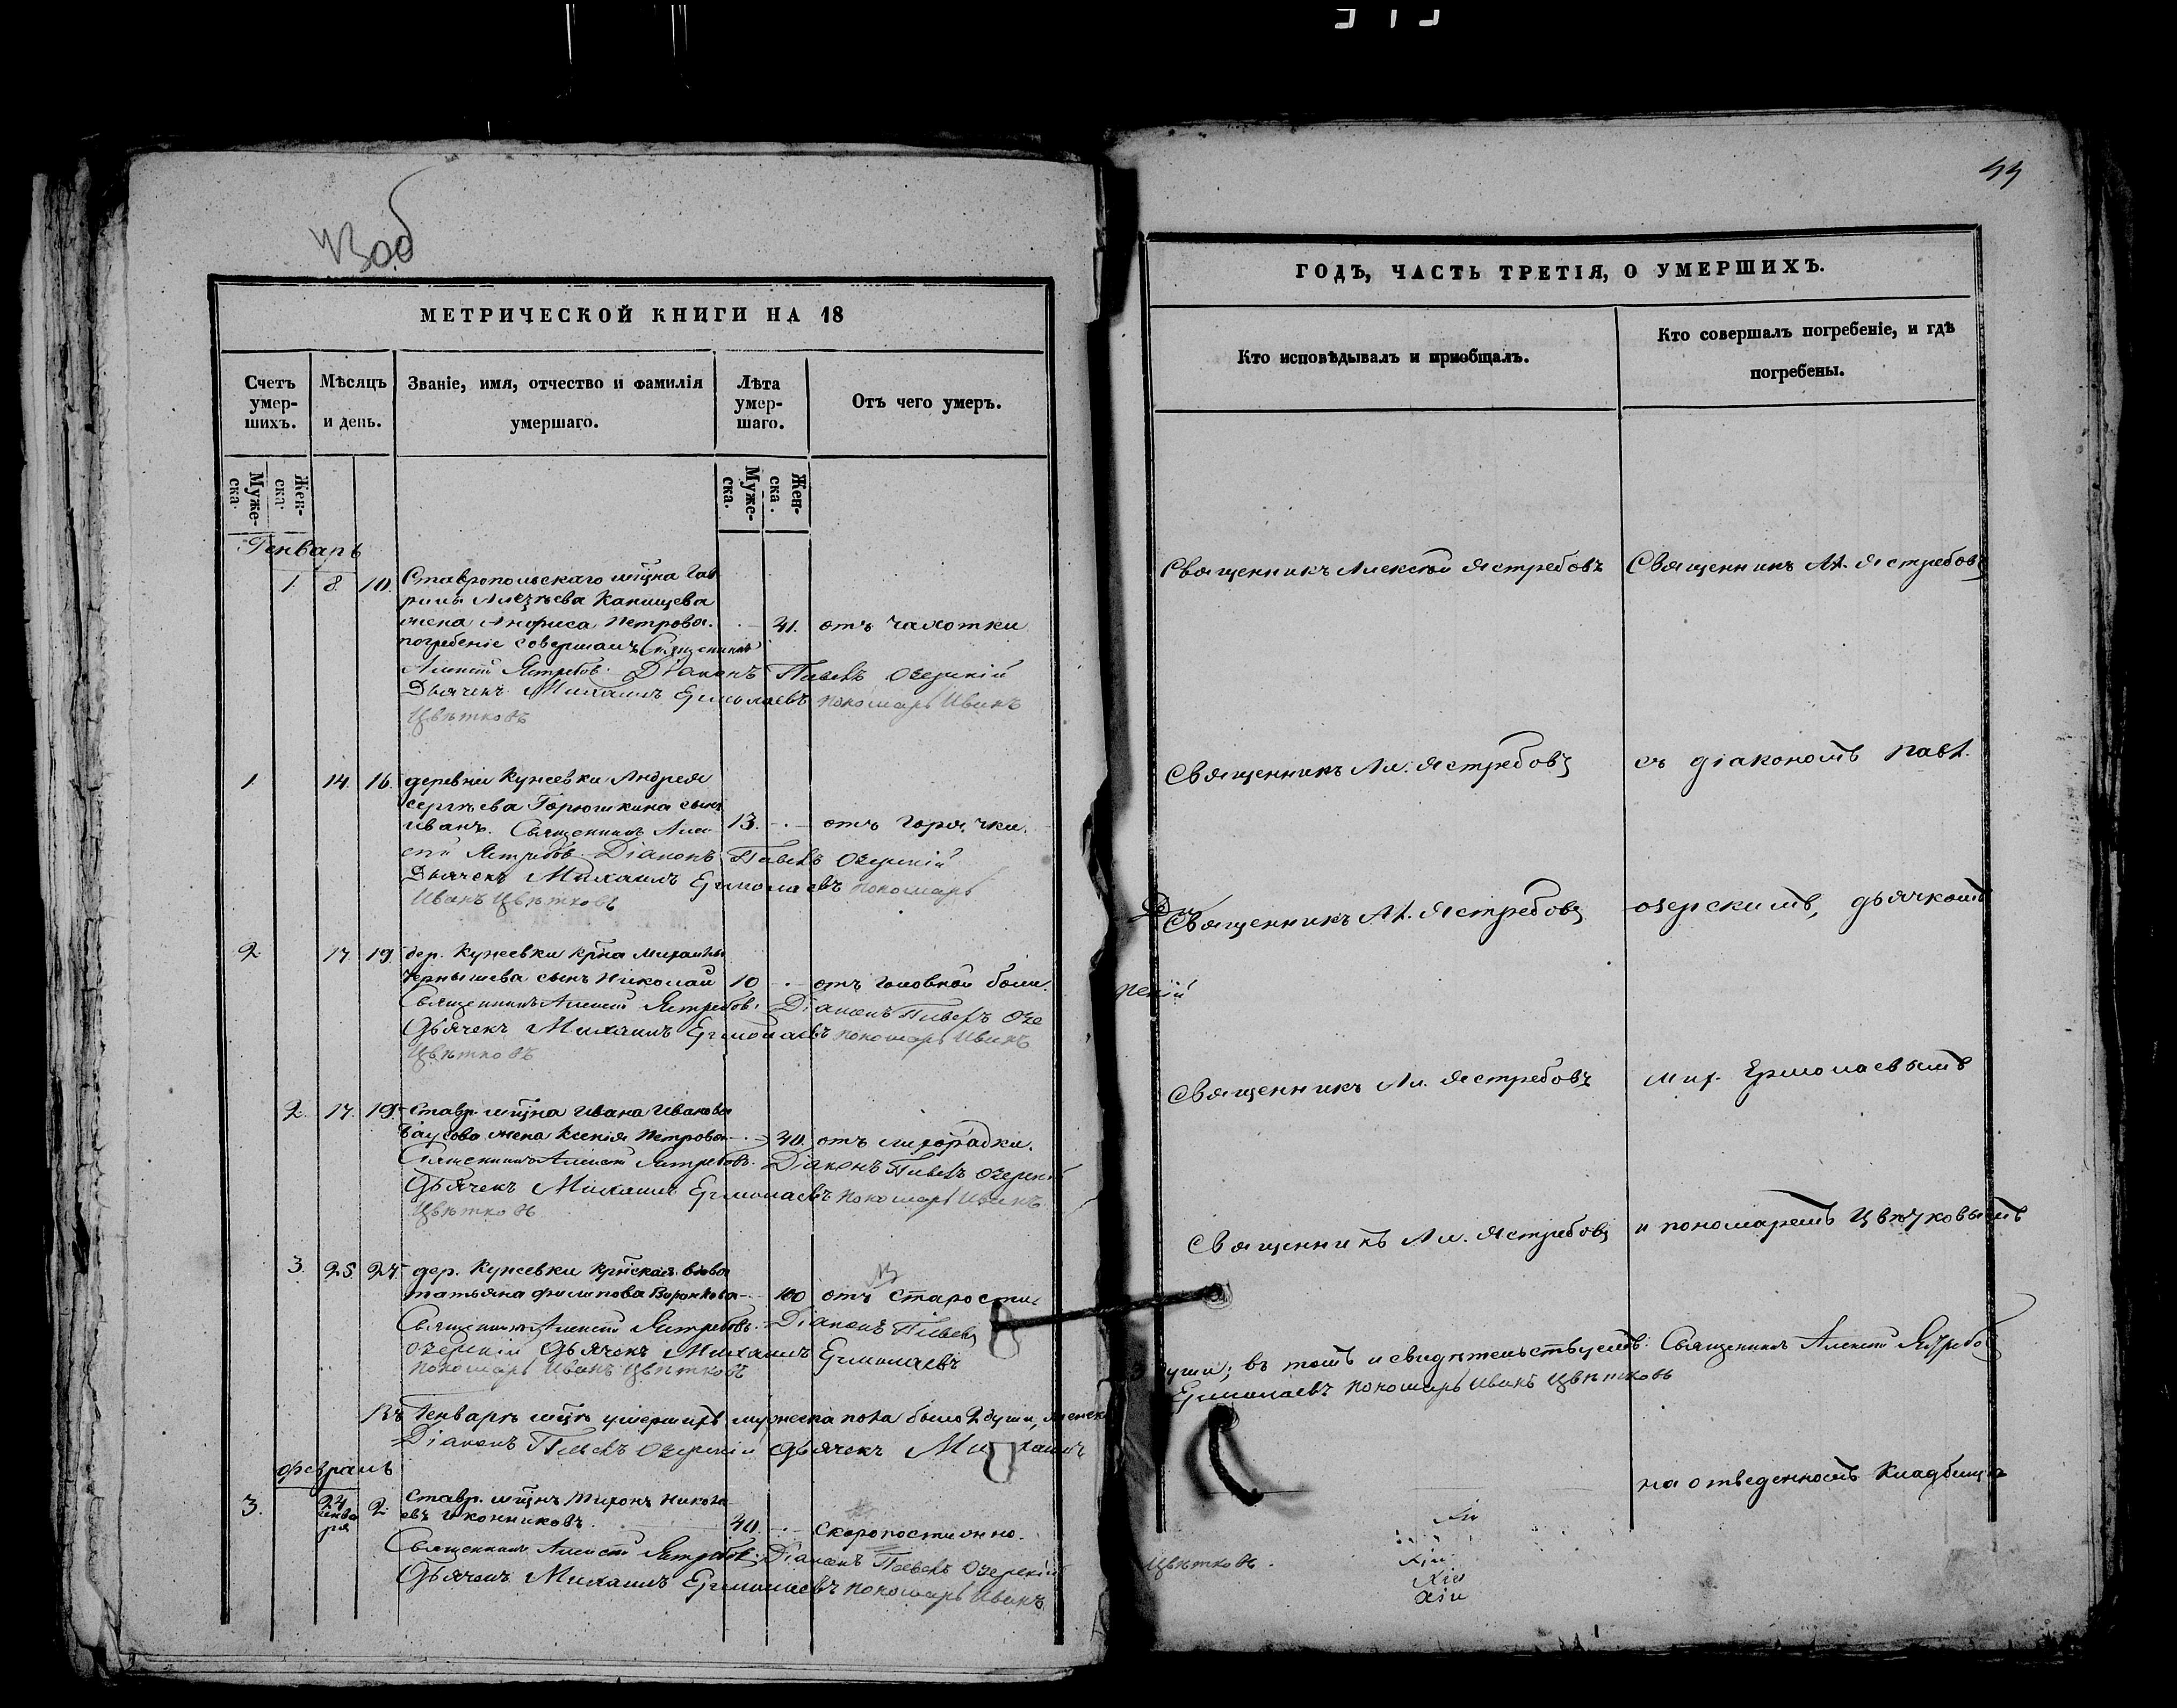 44
МЕТРИЧЕСКОЙ КНИГИ НА 18
Счетъ умер-шихъ.
Мѣсяцъ и день.
Званіе, имя, отчество и фамилія умершаго.
Лѣта умер-шаго.
Отъ чего умеръ.
Муже-ска.
Жен-ска.
Муже-ска.
Жен-ска.
Генварь
1 8. 10. Ставропольскаго мщна Гав
рила Канищева
жена Анфиса Петрова. 31. отъ чахотки
погребеніе совершалъ Священникъ
Алексѣй Ястребовъ. Діаконъ Павелъ Озерскій
Дьячекъ Михаилъ Ермолаевъ пономарь Иванъ
Цвѣтковъ
1. 14. 16. деревни Кунеевки Андрея
Сергѣева Горюшкина сынъ
Иванъ. Священникъ Алек 13. отъ горячки.
сѣй Ястребовъ Діаконъ Павелъ Озерскій
Дьячекъ Михаилъ Ермолаевъ пономарь
Иванъ Цвѣтковъ
2. 17 19. дер. Кунеевки крна Михаилы
Чернышева сынъ Николай 10 отъ головной боли.
Священникъ Алексѣй Ястребовъ. Діаконъ Павелъ Озе
Дьячекъ Михаилъ Ермолаевъ пономарь Иванъ
Цвѣтковъ
2. 17. 19. Ставр. мщна Ивана Иванова
жена Ксенія Петрова 30. отъ лихорадки.
Священникъ Алексѣй Ястребовъ. Діаконъ Павелъ Озерскій
Дьячекъ Михаилъ Ермолаевъ пономарь Иванъ
Цвѣтковъ
3. 25 27. дер. Кунеевки крнская вдова
Татьяна Филипова Воронкова 100 отъ старости
Священникъ Алексѣй Ястребовъ. Діаконъ Павелъ
Озерскій Дьячекъ Михаилъ Ермолаевъ
пономарь Иванъ Цвѣтковъ
Въ Генварѣ мцѣ умершихъ мужеска пола было 2 души, женска
Діаконъ Павелъ Озерскій Дьячекъ Михаилъ
Февраль
3. 24 генваря 2. Ставр. мщнъ Тихонъ Никола
евъ Иконниковъ. 40. скоропостижно.
Священникъ Алексѣй Ястребовъ. Діаконъ Павелъ Озерскій
Дьячекъ Михаилъ Ермолаевъ пономарь Иванъ
ГОДЪ, ЧАСТЬ ТРЕТІЯ, О УМЕРШИХЪ.
Кто исповѣдывалъ и пріобщалъ.
Кто совершалъ погребеніе, и гдѣ погребены.
Священникъ Алексѣй Ястребовъ Священникъ Ал. Ястребовъ
Священникъ Ал. Ястребовъ съ діакономъ Павл.
Священникъ Ал. Ястребовъ Озерскимъ, дьячкомъ
рскій
Священникъ Ал. Ястребовъ Мих. Ермолаевымъ
Священникъ Ал. Ястребовъ и пономаремъ Цвѣтковымъ
уши; въ томъ и свидѣтельствуемъ. Священникъ Алексѣй Ястребовъ
Ермолаевъ пономарь Иванъ Цвѣтковъ
на отведенномъ кладбищѣ
Цвѣтковъ.